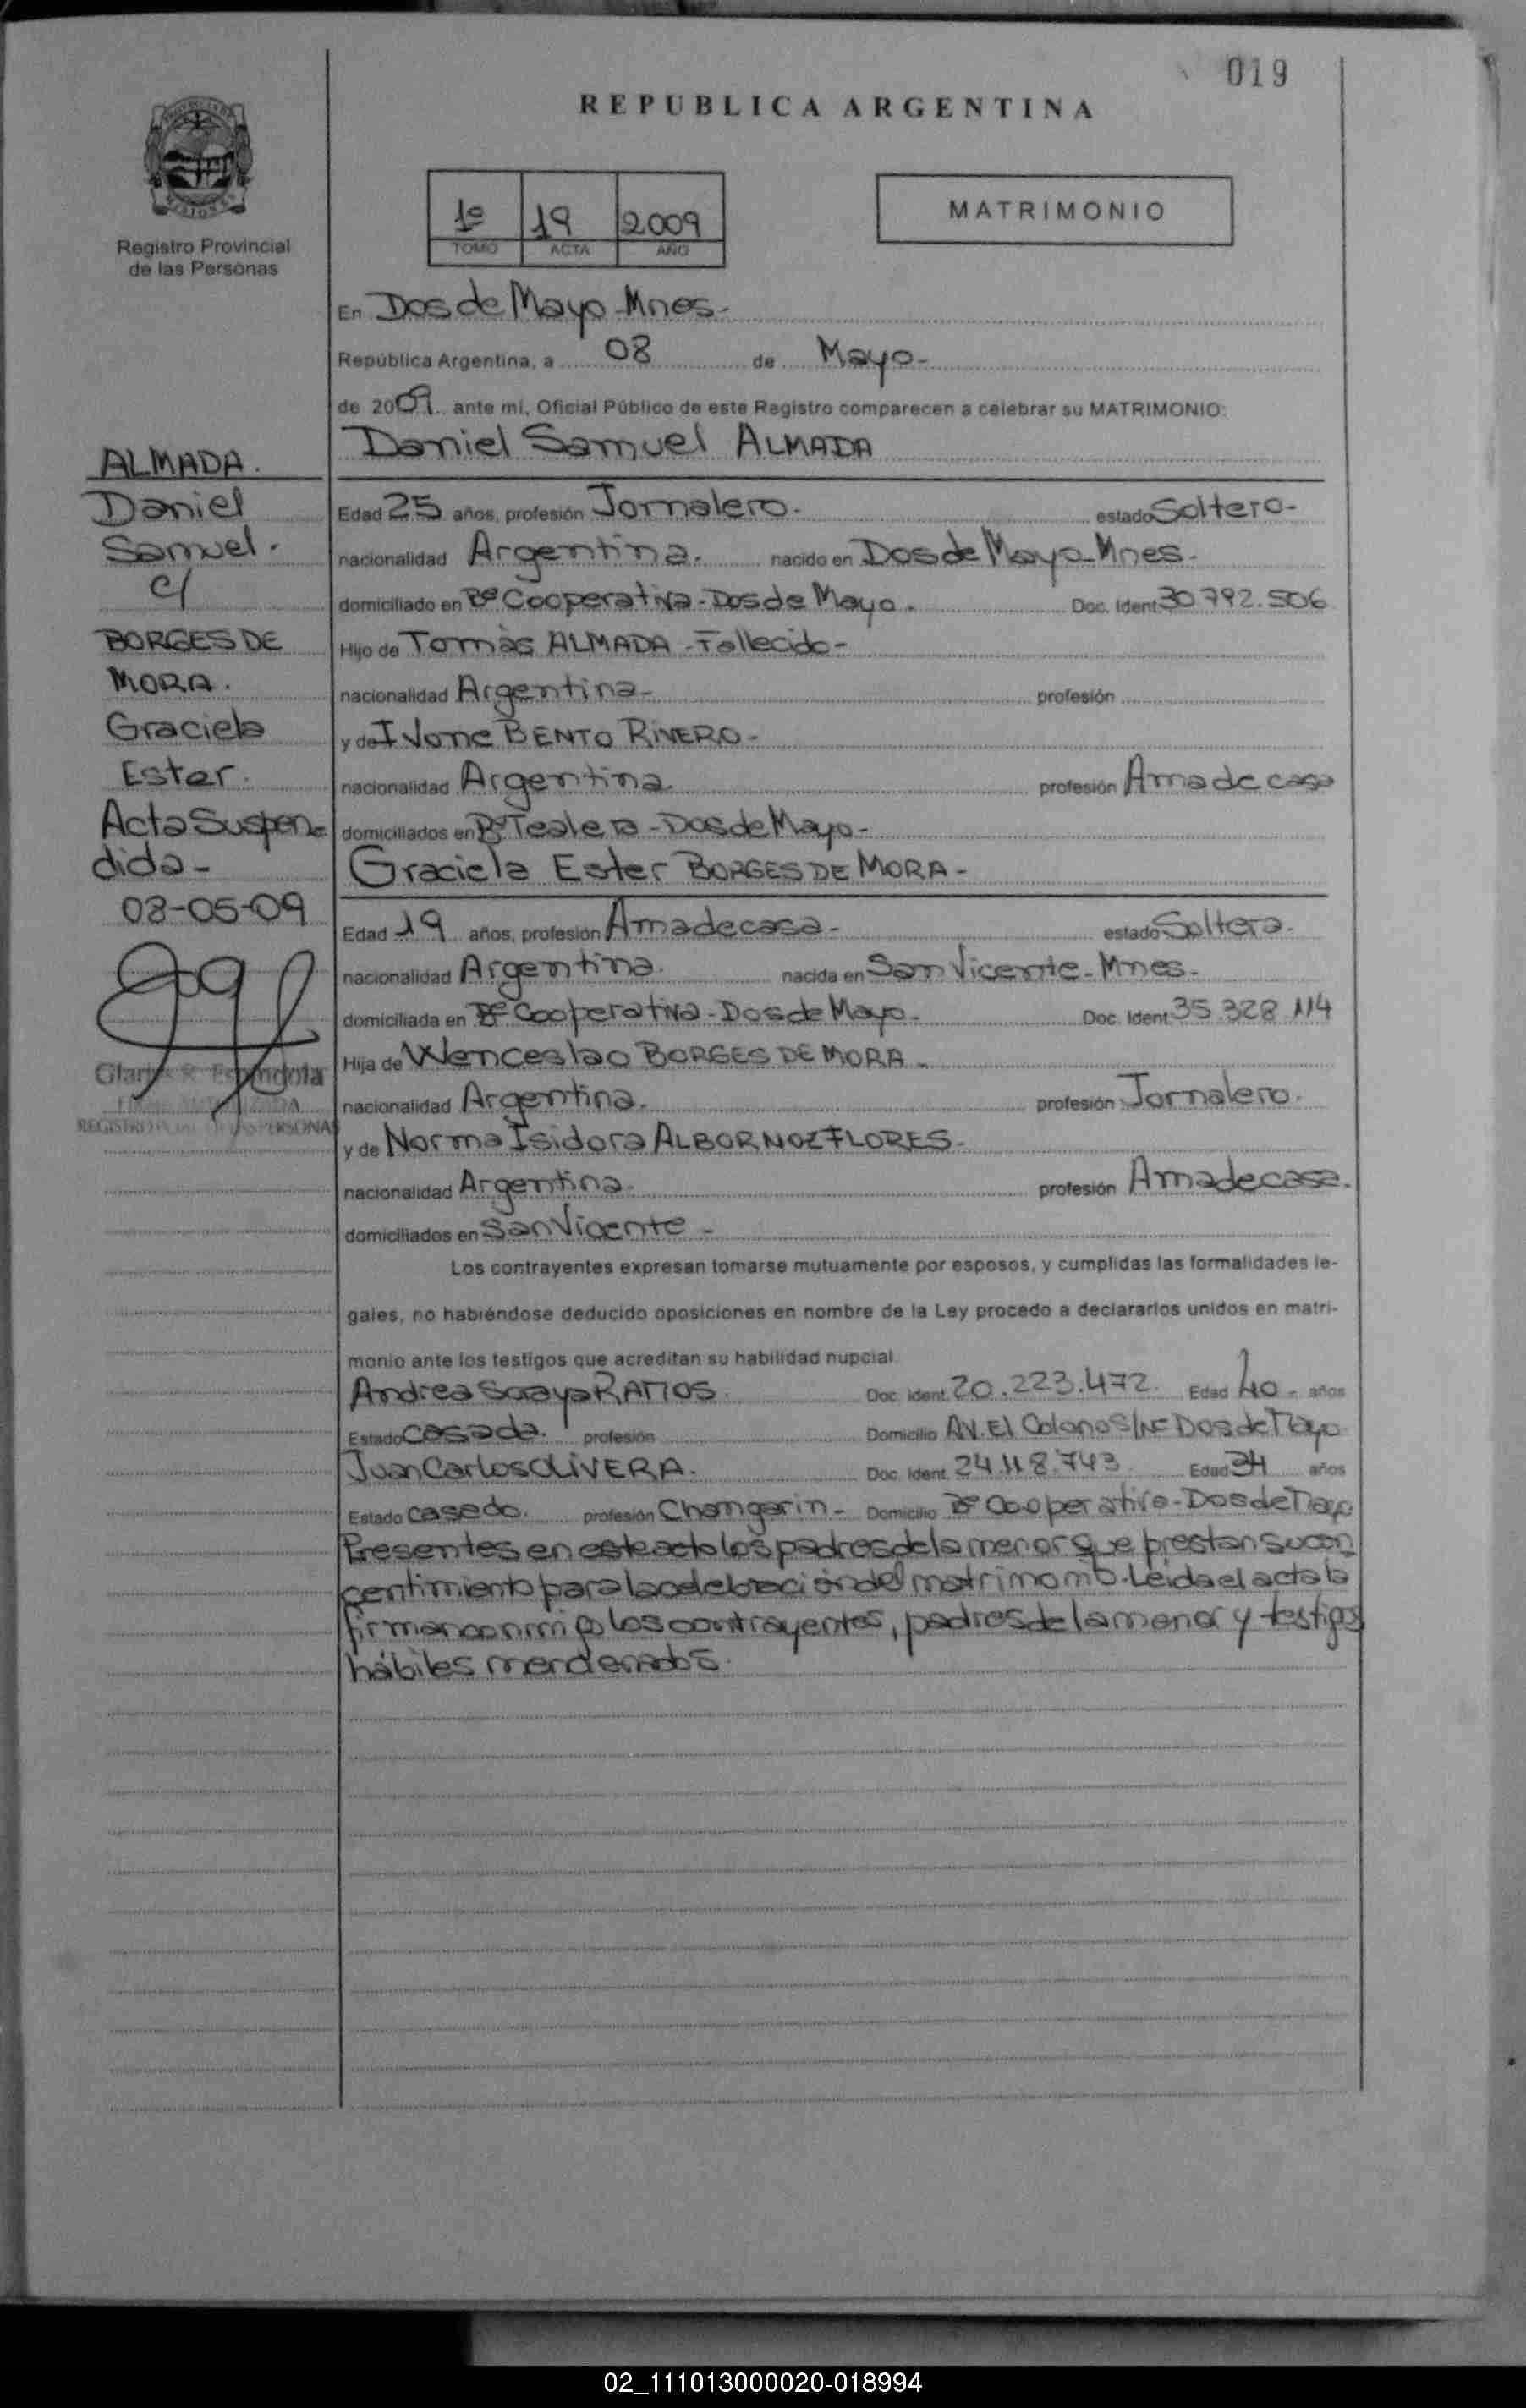 019
REPUBLICA ARGENTINA
1º 19 2009
TOMO ACTA AÑO
MATRIMONIO
Registro Provincial
de las Personas
En Dos de Mayo - Mnes -
República Argentina, a 08 de Mayo -
de 2009 ante mí, Oficial Público de este Registro comparecen a celebrar su MATRIMONIO:
Daniel Samuel ALMADA
ALMADA.
Daniel
Samuel.
c/
BORGES DE
MORA.
Graciela
Ester.
Acta Suspen-
dida -
08-05-09
REGISTRO PERSONAS
Edad 25 años, profesión Jornalero. estado Soltero-
nacionalidad Argentina. nacido en Dos de Mayo - Mnes -
domiciliado en Bº Cooperativa - Dos de Mayo. Doc. Ident. 30.792.506
Hijo de Tomàs ALMADA - Fallecido -
nacionalidad Argentina - profesión
y de Ivone BENTO RIVERO -
nacionalidad Argentina profesión Ama de casa
domiciliados en Bº Tealera - Dos de Mayo -
Graciela Ester BORGES DE MORA -
Edad 19 años, profesión Ama de casa - estado Soltera.
nacionalidad Argentina. nacida en San Vicente - Mnes -
domiciliada en Bº Cooperativa - Dos de Mayo - Doc. Ident. 35.328.114
Hija de Wenceslao BORGES DE MORA -
nacionalidad Argentina. profesión Jornalero.
y de Norma Isidora ALBORNOZ FLORES -
nacionalidad Argentina - profesión Ama de casa.
domiciliados en San Vicente -
Los contrayentes expresan tomarse mutuamente por esposos, y cumplidas las formalidades le-
gales, no habiéndose deducido oposiciones en nombre de la Ley procedo a declararlos unidos en matri-
monio ante los testigos que acreditan su habilidad nupcial
Andrea RAMOS. Doc. Ident. 20.223.472. Edad 40 - años
Estado casada. profesión Domicilio AV. El Colono S/Nº Dos de Mayo
Juan Carlos OLIVERA. Doc. Ident. 24.118.743 Edad 34 años
Estado casado. profesión Changarin - Domicilio Bº Cooperativa - Dos de Mayo
Presentes en este acto los padres de la menor que prestan su con
centimiento para la celebración del matrimonio - Leida el acta la
firman conmigo los contrayentes, padres de la menor y testigos
hábiles mencionados.
02_111013000020-018994